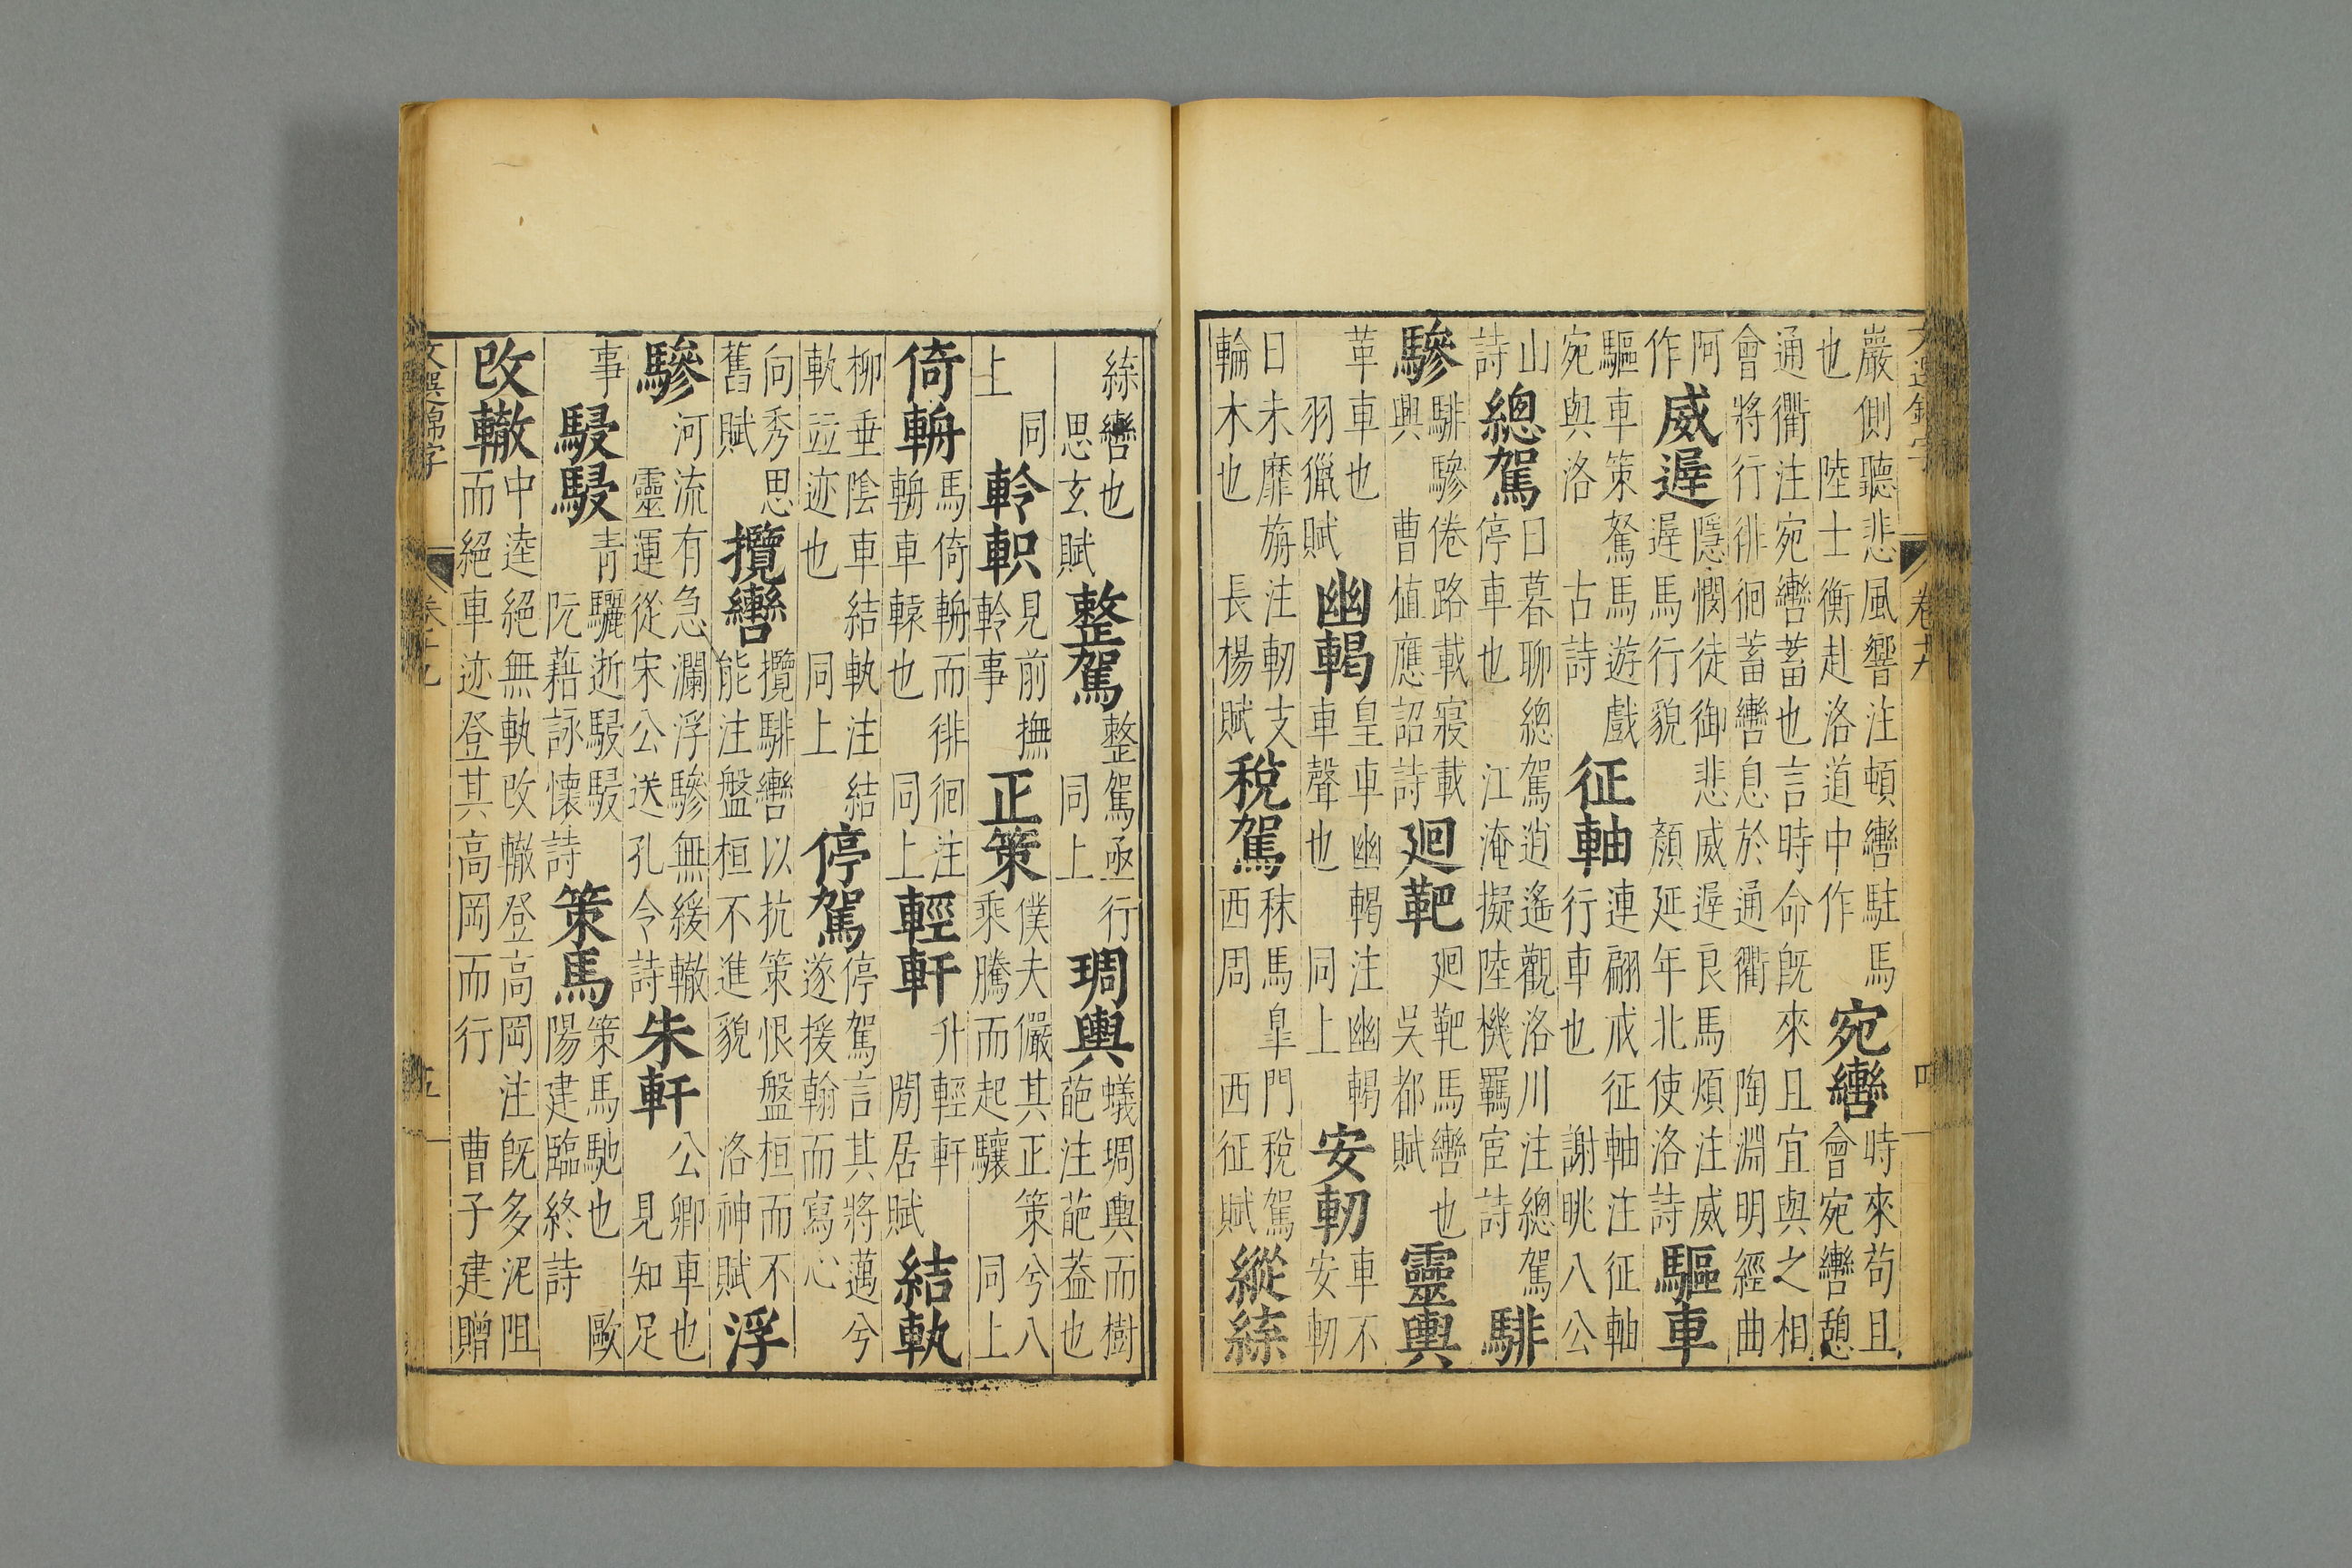 文選錦字 卷十九 四
巖側聽悲風響注頓轡駐馬
也 陸士衡赴洛道中作
宛轡
時來苟且
會宛轡憩
通衢注宛轡蓄也言時命旣來且宜與之相
會將行徘徊蓄轡息於通衢 陶淵明經曲
阿
作
威遲
隱憫徒御悲威遲良馬煩注威
遲馬行貌 顏延年北使洛詩
驅車
驅車策駑馬遊戲
宛與洛 古詩
征軸
連翩戒征軸注征軸
行車也 謝眺八公
山
詩
總駕
日暮聊總駕逍遙觀洛川注總駕
停車也 江淹擬陸機羈宦詩
騑
驂
騑驂倦路載寢載
興 曹植應詔詩
廻靶
廻靶馬轡也
吳都賦
靈輿
革車也
羽獵賦
幽輵
皇車幽輵注幽輵
車聲也 同上
安軔
車不
安軔
日未靡旃注軔支
輪木也 長楊賦
稅駕
秣馬臯門稅駕
西周 西征賦
縱緤
緤轡也
思玄賦
整駕
整駕亟行
同上
琱輿
蟻琱輿而樹
葩注葩葢也
同
上
軨軹
見前撫
軨事
正策
僕夫儼其正策兮八
乘騰而起驤 同上
倚輈
馬倚輈而徘徊注
輈車轅也 同上
輕軒
升輕軒
閒居賦
結軌
柳垂陰車結軌注結
軌竝迹也 同上
停駕
停駕言其將邁兮
遂援翰而寫心
向秀思
舊賦
攬轡
攬騑轡以抗策恨盤桓而不
能注盤桓不進貌 洛神賦
浮
驂
河流有急瀾浮驂無緩轍
靈運從宋公送孔令詩
朱軒
公卿車也
見知足
事
駸駸
青驪逝駸駸
阮藉詠懷詩
策馬
策馬馳也 歐
陽建臨終詩
改轍
中逵絕無軌改轍登高岡注旣多泥阻
而絕車迹登其高岡而行 曹子建贈
文選錦字 卷十九 五